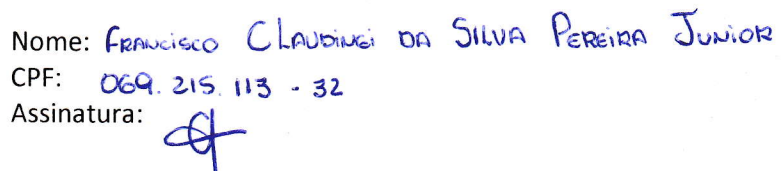 Nome: Francisco Claudinei da Silva Pereira Junior
CPF: 069.215.113-32
Assinatura: